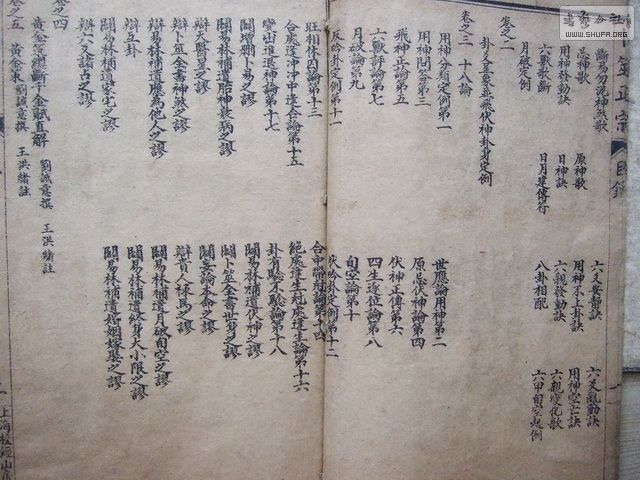 筮正宗 目錄
斷易勿泥神煞歌 六爻安靜訣 六爻亂動訣
忌神歌 原神歌 用神不上卦訣 用神空亡訣
用神發動訣 日神訣 六親發動訣 六親變化歌
六獸歌斷 日月建傳符 八卦相配 六甲旬空起例
月破定例
卷之二
卦爻呈象並飛伏神卦身定例
卷之三 十八論
用神分類定例第一 世應論用神第二
用神問答第三 原忌仇神論第四
飛神正論第五 伏神正傳第六
六獸評論第七 四生逐位論第八
月破論第九 旬空論第十
反吟卦定例第十一 伏吟卦定例第十二
旺相休囚論第十三 合中帶剋論第十四
合處逢冲冲中逢合論第十五 絕處逢生剋處逢生論第十六
變出進退神論第十七 卦有驗不驗論第十八
闢增刪卜易之謬 闢易林補遺伏神之謬
闢易林補遺胎神疾病之謬 闢卜筮全書世身之謬
辯卜筮全書神煞之謬 闢妄論本命之謬
辯天醫星之謬 辯貴人祿馬之謬
闢易林補遺應爲他人之謬 闢易林補遺月破旬空之謬
辯互卦 闢易林補遺終身大小限之謬
闢易林補遺家宅之謬 闢易林補遺婚姻嫁娶之謬
辯六爻諸占之謬
卷之四
黃金策總斷千金賦直解 劉誠意撰 王洪緒註
卷之五 黃金策 劉誠意撰 王洪緒註
上海校經山房
WWW.SHUFA.ORG